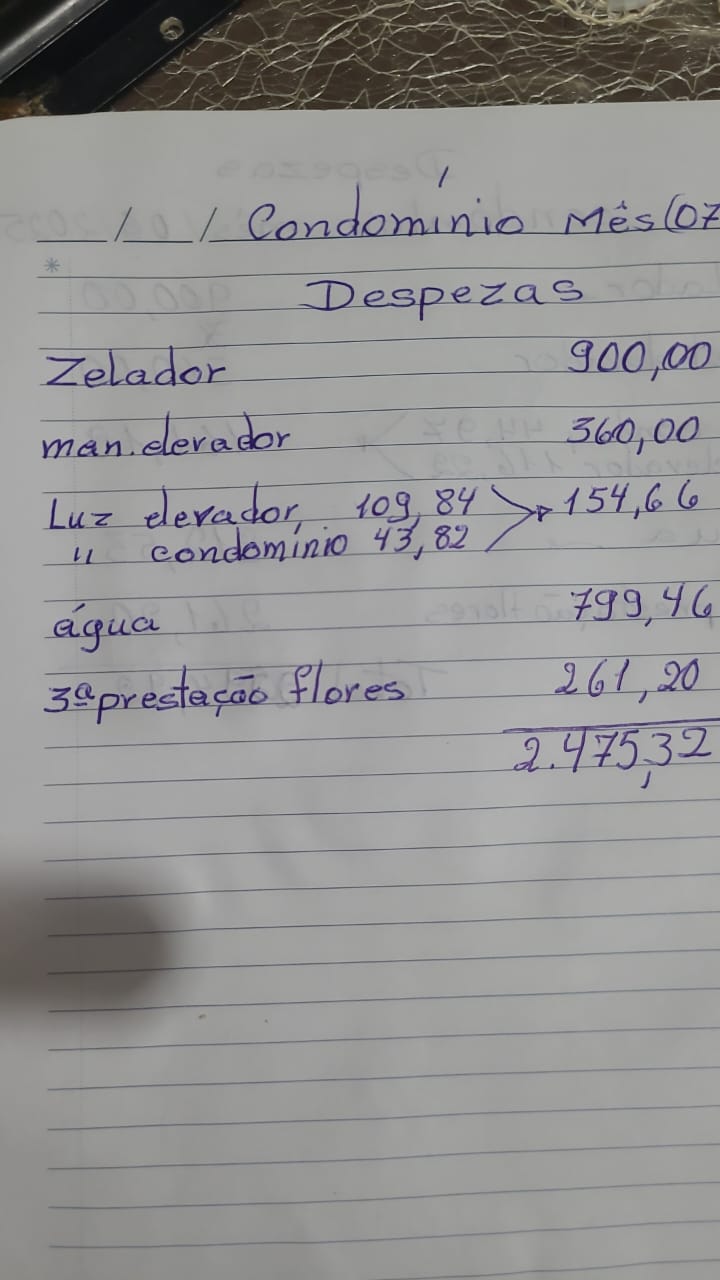 __/__/ Condomínio Mês (07
Despezas
Zelador 900,00
man. elevador 360,00
Luz elevador, 109,84 154,66
" condomínio 43,82
água 799,46
3ª prestação flores 261,20
2.475,32